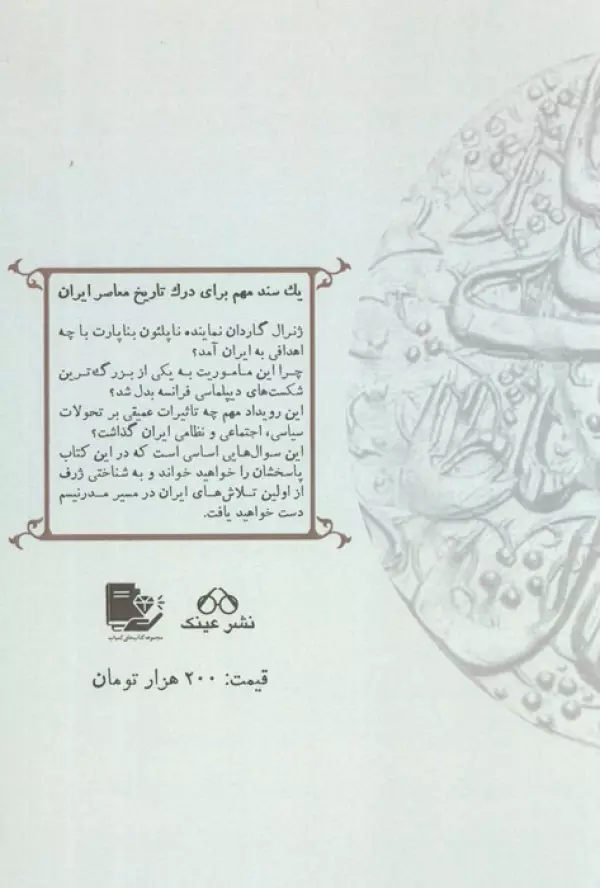 یک سند مهم برای درک تاریخ معاصر ایران
ژنرال گاردان نماینده ناپلئون بناپارت با چه
اهدافی به ایران آمد؟
چرا این ماموریت به یکی از بزرگ‌ترین
شکست‌های دیپلماسی فرانسه بدل شد؟
این رویداد مهم چه تاثیرات عمیقی بر تحولات
سیاسی، اجتماعی و نظامی ایران گذاشت؟
این سوال‌هایی اساسی است که در این کتاب
پاسخشان را خواهید خواند و به شناختی ژرف
از اولین تلاش‌های ایران در مسیر مدرنیسم
دست خواهید یافت.
نشر عینک
مجموعه کتاب‌های کمیاب
قیمت: ۲۰۰ هزار تومان